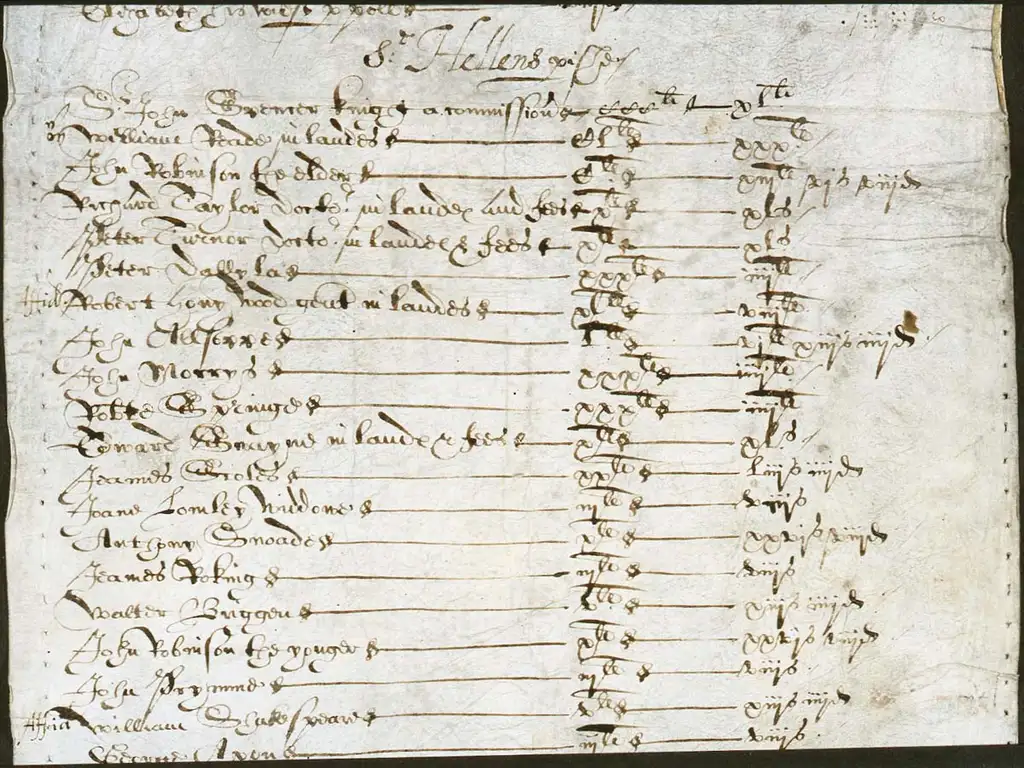 St Hellens pishe
Sr John Spencer knight a commissioner xli
William Reade in landes xxxli
John Robinson the elder
Richard Taylor docto'r in landes and fees xli xls
Peter Turnor docto'r in landes & fees xli xls
Peter Dallyla xxxli iiijli
Affid Robert Honywood gent in landes xlli
John Allsoppe
John Morrys xxxli iiijli
Robte Springe xxxli iiijli
Edward Swayne in landes & fees xli xls
Jeames Scoles xxli liijs iiijd
Joane Lomley widdowe iijli viijs
Anthony Snoade xli xxvjs viijd
Jeames Roking iijli viijs
Walter Briggen vli xiijs iiijd
John Robinson the yonger xli xxvjs viijd
John Prymme iijli viijs
Affid William Shakespeare vli xiijs iiijd
George Axon iijli viijs